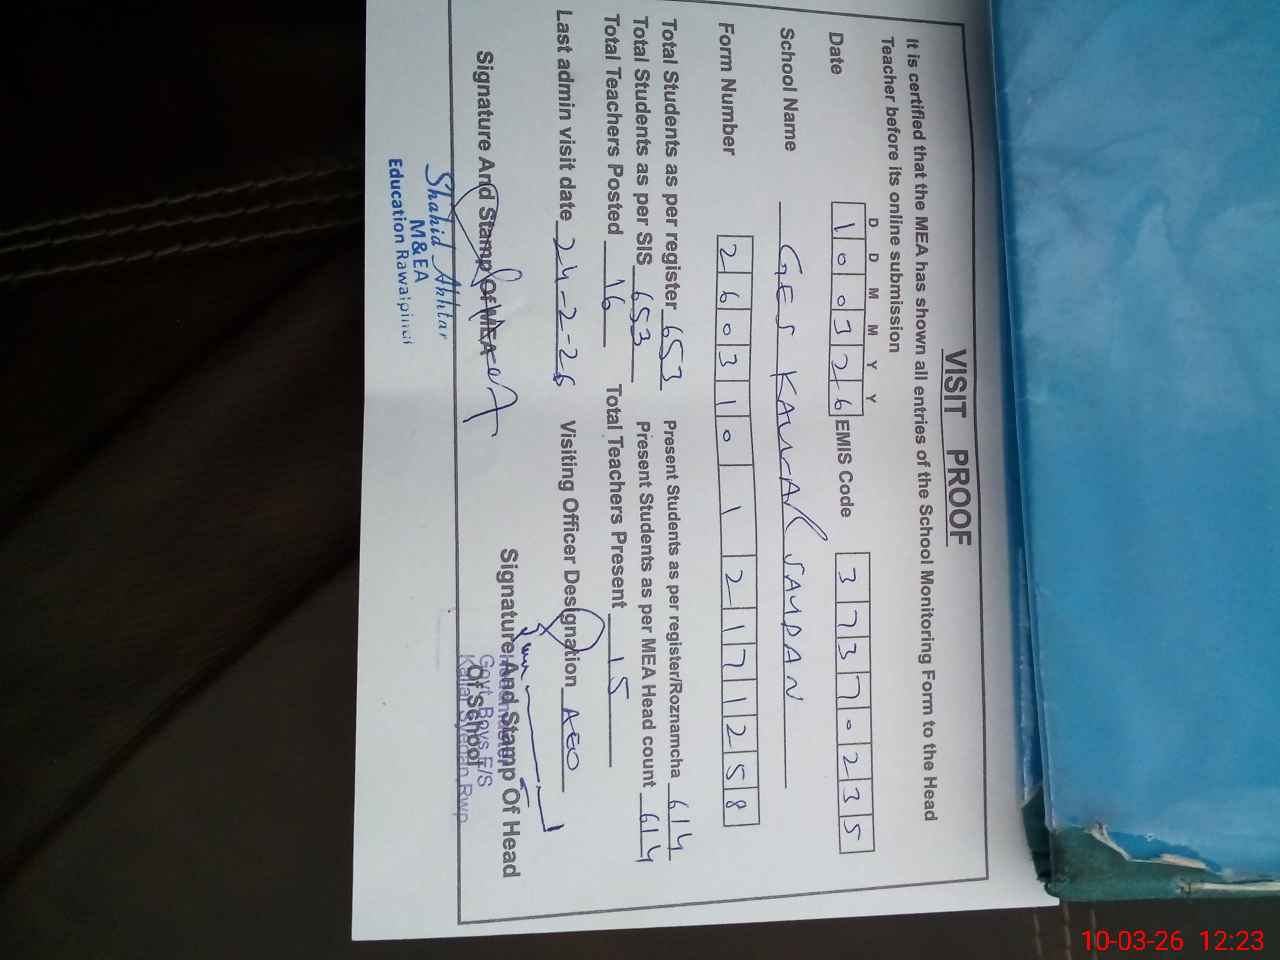 VISIT PROOF
It is certified that the MEA has shown all entries of the School Monitoring Form to the Head
Teacher before its online submission
D D M M Y Y
Date 1 0 0 3 2 6 EMIS Code 3 7 3 7 0 2 3 5
School Name GES KALLAR SAYDAN
Form Number 2 6 0 3 1 0 1 2 1 7 1 2 5 8
Total Students as per register 653 Present Students as per register/Roznamcha 614
Total Students as per SIS 653 Present Students as per MEA Head count 614
Total Teachers Posted 16 Total Teachers Present 15
Last admin visit date 24-2-26 Visiting Officer Designation AEO
Signature And Stamp Of MEA Signature And Stamp Of Head
Of School
Shahid Akhtar
M&EA
Education Rawalpindi
Govt. Boys E/S
Kallar Syedan Rwp
10-03-26 12:23